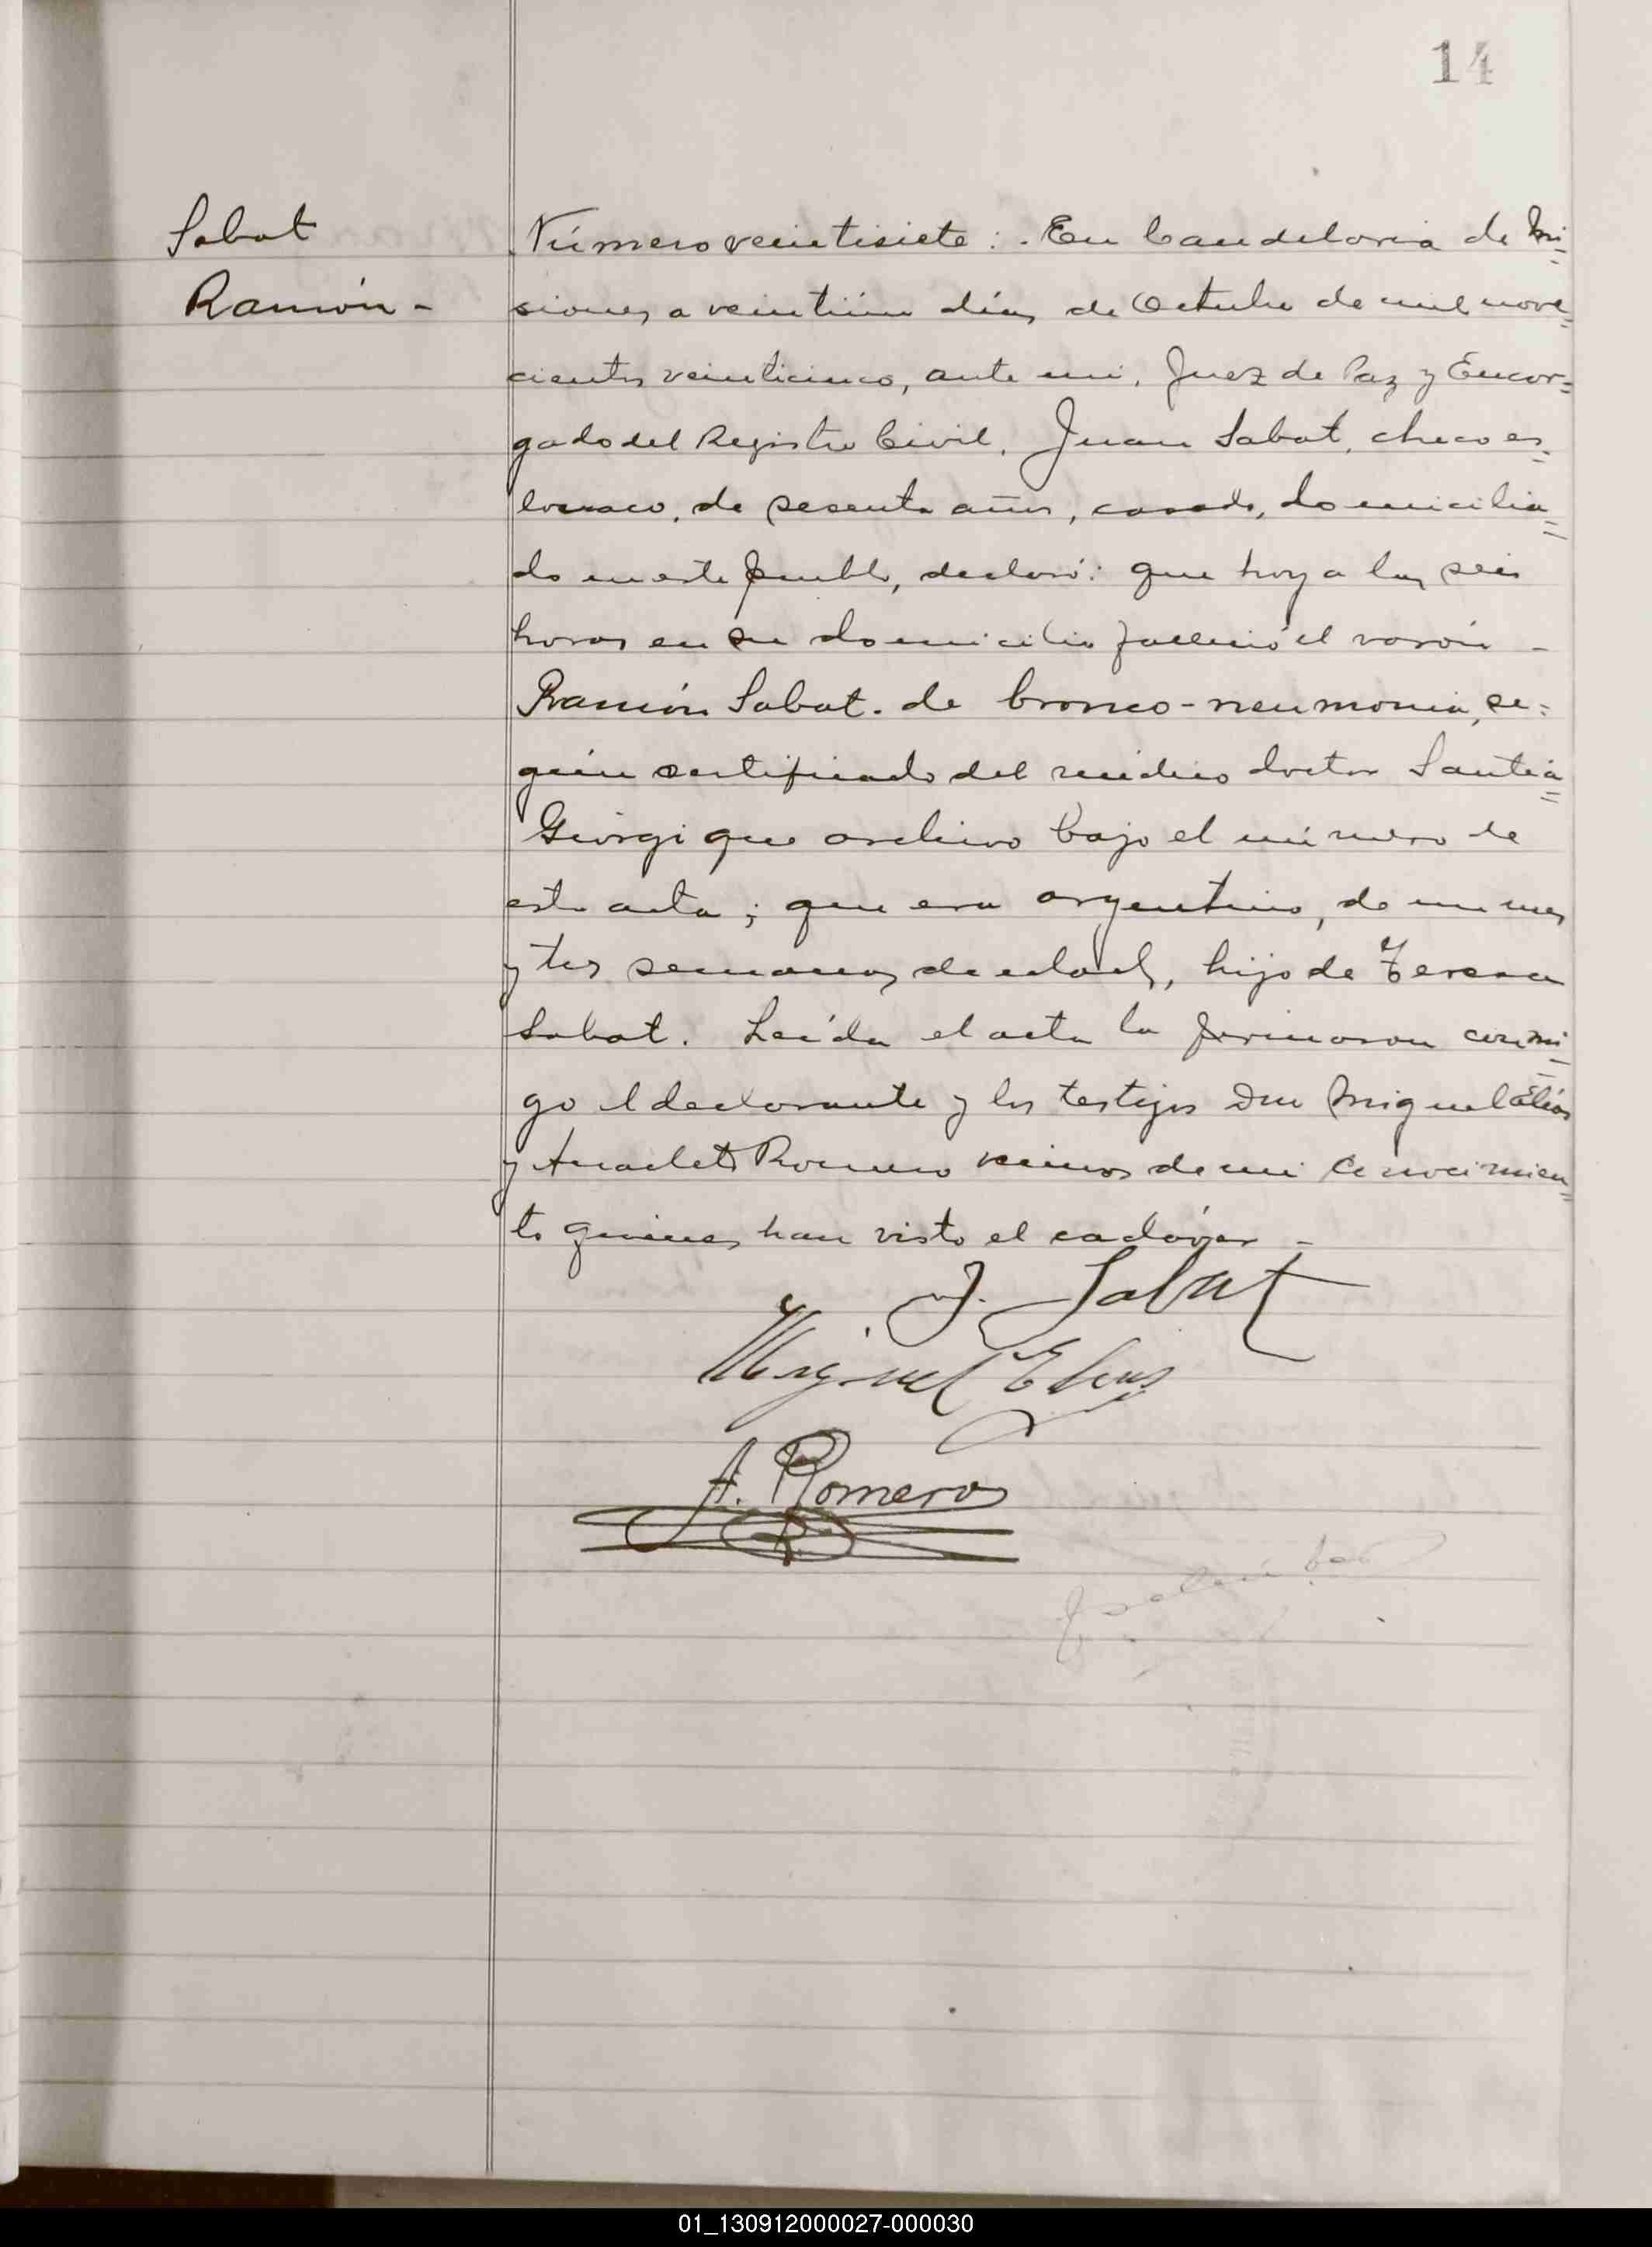 14
Sabat
Ramón -
Número veintisiete: . En Candelaria de Mi=
siones, a veintiún días de Octubre de mil nove=
cientos veinticinco, ante mi, Juez de Paz y Encar=
gado del Registro Civil, Juan Sabat, checoes=
lovaco, de sesenta años, casado, domicilia=
do en este pueblo, declaró: que hoy a las seis
horas en su domicilio falleció el varón -
Ramón Sabat. de bronco-neumonia, se=
gún certificado del médico doctor Santia=
Giorgi que archivo bajo el número de
esta acta; que era argentino, de un mes
y tres semanas de edad, hijo de Teresa
Sabat. Leída el acta la firmaron conmi=
go el declarante y los testigos Don Miguel Elias
y Anacleto Romero vecinos de mi conocimien=
to quienes han visto el cadáver -
J. Sabat
Miguel Elias
A. Romero
01_130912000027-000030